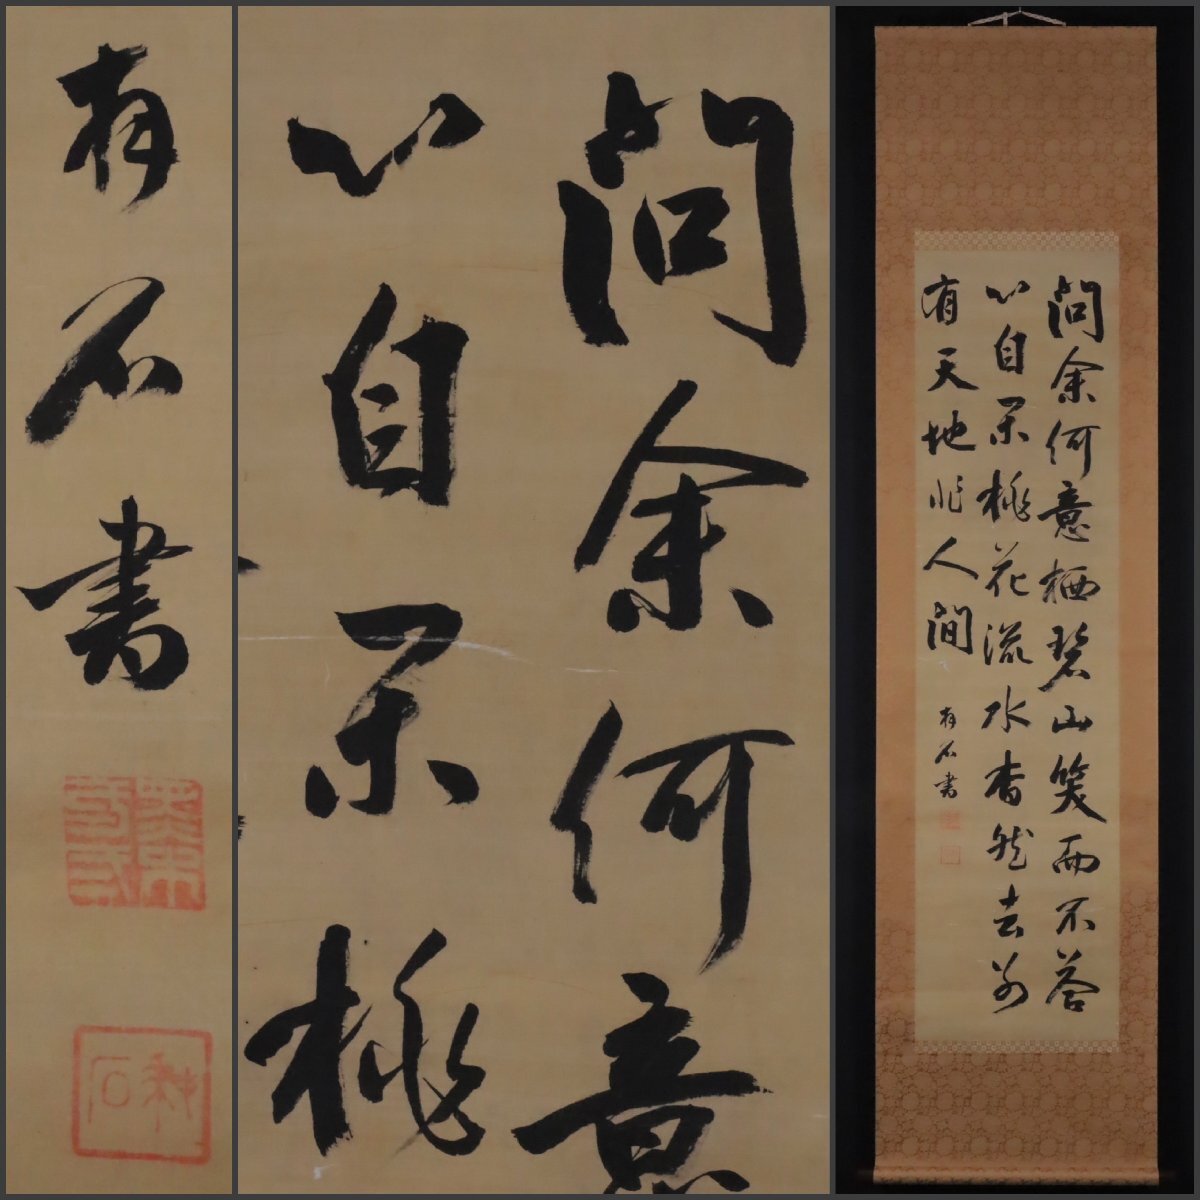 問余何意栖碧山笑而不答
心自閑桃花流水杳然去別
有天地非人間
石書
問余何意
心自閑桃
石書